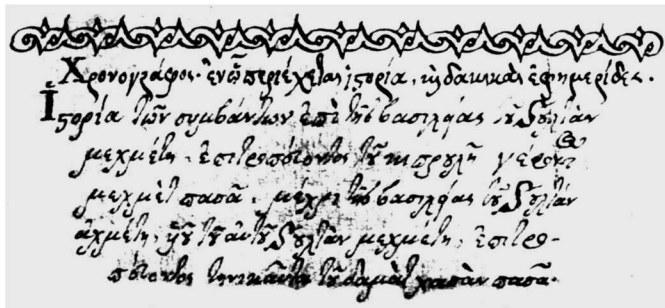 Χρονογράφος· ἐν ᾧ περιέχεται ἱστορία, καὶ δακικαὶ ἐφημερίδες.
Ἱστορία τῶν συμβάντων ἐπὶ τῆς βασιλείας τοῦ Σουλτὰν
μεχμέτη, ἐπιτροπεύοντος τοῦ κιπρουλῆ γέροντ
μεχμὲτ πασᾶ, μέχρι τῆς βασιλείας τοῦ Σουλτὰν
ἀχμέτη, υἱοῦ τοῦ αὐτοῦ Σουλτὰν μεχμέτη, ἐπιτρο-
πεύοντος τηνικαῦτα τοῦ δαμὰτ χασὰν πασᾶ.